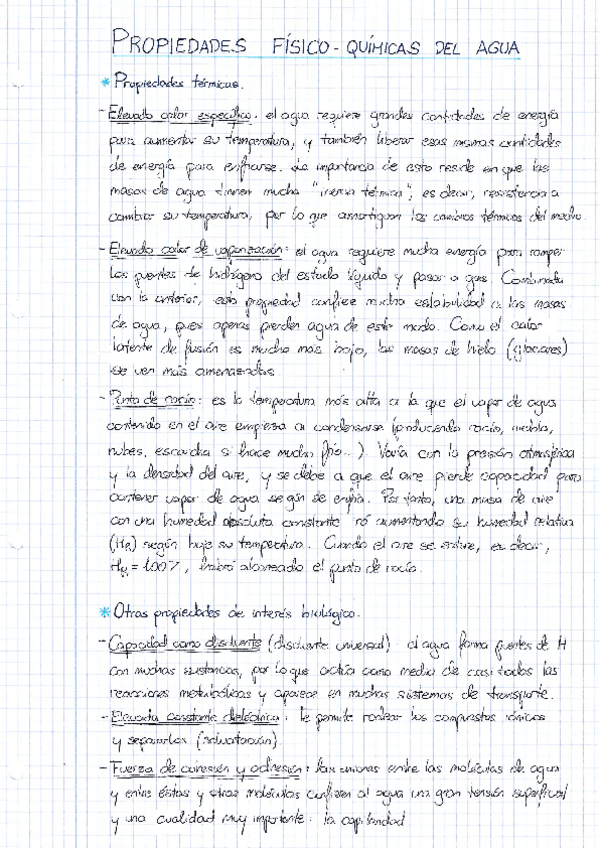 PROPIEDADES FÍSICO-QUÍMICAS DEL AGUA
* Propiedades térmicas.
- Elevado calor específico: el agua requiere grandes cantidades de energía
para aumentar su temperatura, y también liberar esas mismas cantidades
de energía para enfriarse. La importancia de esto reside en que las
masas de agua tienen mucha "inercia térmica", es decir, resistencia a
cambiar su temperatura, por lo que amortiguan los cambios térmicos del medio.
- Elevado calor de vaporización: el agua requiere mucha energía para romper
los puentes de hidrógeno del estado líquido y pasar a gas. Combinada
con la anterior, esta propiedad confiere mucha estabilidad a las masas
de agua, pues apenas pierden agua de este modo. Como el calor
latente de fusión es mucho más bajo, las masas de hielo (glaciares)
se ven más amenazadas.
- Punto de rocío: es la temperatura más alta a la que el vapor de agua
contenido en el aire empieza a condensarse (produciendo rocío, niebla,
nubes, escarcha si hace mucho frío...). Varía con la presión atmosférica
y la densidad del aire, y se debe a que el aire pierde capacidad para
contener vapor de agua según se enfría. Por tanto, una masa de aire
con una humedad absoluta constante irá aumentando su humedad relativa
(HR) según baje su temperatura. Cuando el aire se sature, es decir,
HR = 100%, habrá alcanzado el punto de rocío.
* Otras propiedades de interés biológico.
- Capacidad como disolvente (disolvente universal): el agua forma puentes de H
con muchas sustancias, por lo que actúa como medio de casi todas las
reacciones metabólicas y aparece en muchos sistemas de transporte.
- Elevada constante dieléctrica: le permite rodear los compuestos iónicos
y separarlos (solvatación)
- Fuerza de cohesión y adhesión: las uniones entre las moléculas de agua
y entre éstas y otras moléculas confieren al agua una gran tensión superficial
y una cualidad muy importante: la capilaridad